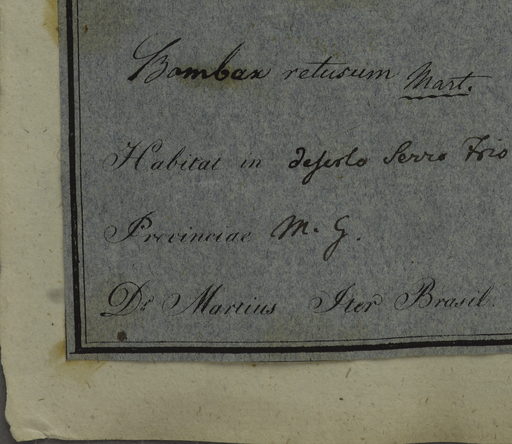 Bombax retusum Mart.
Habitat in deserto Serro Frio
Provinciae M. G.
Dr Martius Iter Brasil.